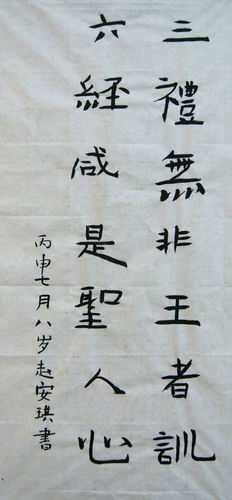 三禮無非王者訓
六経咸是聖人心
丙申七月八岁赵安琪書